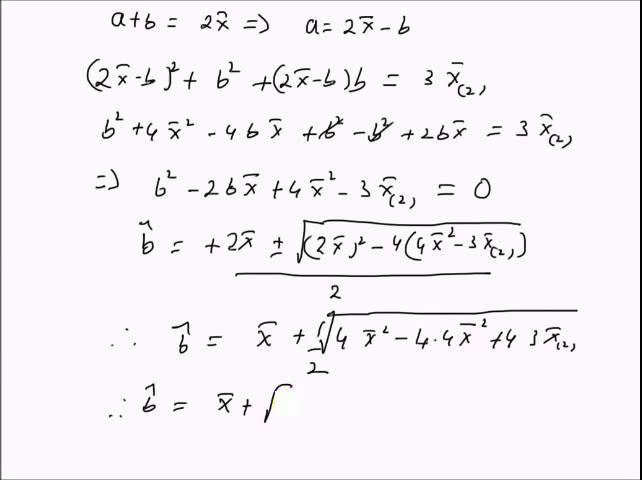 a+b = 2x̄ => a = 2x̄ - b
(2x̄-b)² + b² + (2x̄-b)b = 3 x̄₍₂₎
b² + 4x̄² - 4bx̄ + b² - b² + 2bx̄ = 3 x̄₍₂₎
=> b² - 2bx̄ + 4x̄² - 3x̄₍₂₎ = 0
b̂ = +2x̄ ± √((2x̄)² - 4(4x̄² - 3x̄₍₂₎))
2
∴ b̂ = x̄ + 1/2 √(4x̄² - 4·4x̄² + 4 3x̄₍₂₎
∴ b̂ = x̄ + √